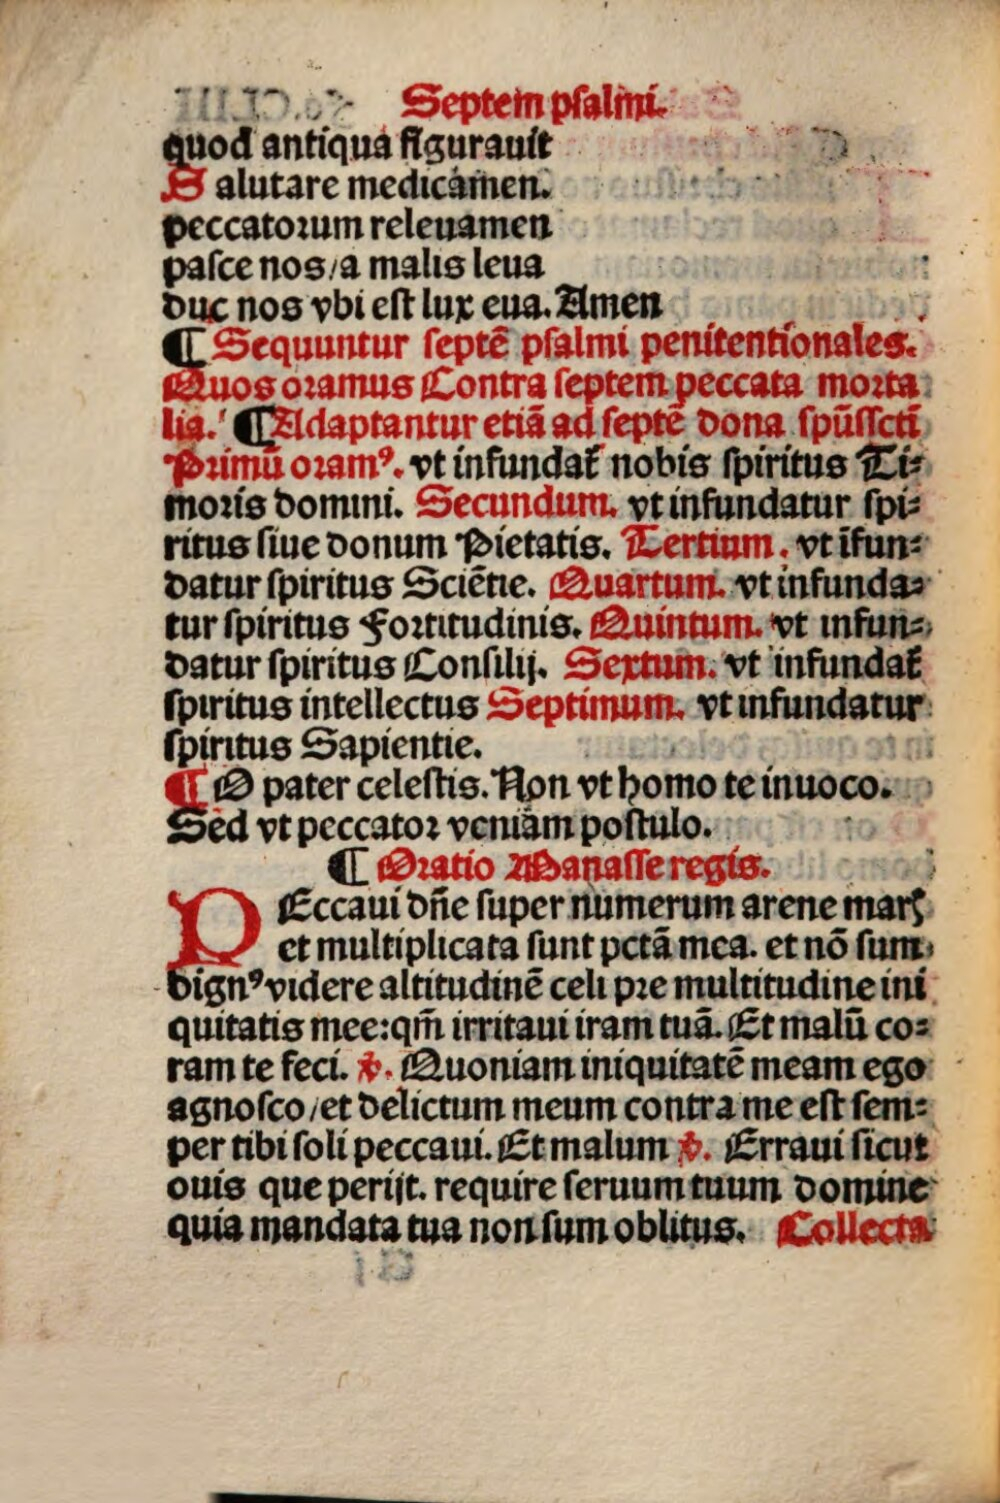 Septem psalmi.
quod antiqua figurauit
Salutare medicamen.
peccatorum releuamen
pasce nos/a malis leua
duc nos vbi est lux eua. Amen
¶ Sequuntur septē psalmi penitentionales.
Quos oramus Contra septem peccata morta
lia. ¶ Adaptantur etiā ad septē dona spūssctī
Primū oramꝰ. vt infundat᷑ nobis spiritus Ti⸗
moris domini. Secundum. vt infundatur spi⸗
ritus siue donum Pietatis. Tertium. vt īfun⸗
datur spiritus Sciētie. Quartum. vt infunda⸗
tur spiritus Fortitudinis. Quintum. vt infun⸗
datur spiritus Consilij. Sextum. vt infundat᷑
spiritus intellectus Septimum. vt infundatur
spiritus Sapientie.
¶ O pater celestis. Non vt homo te inuoco.
Sed vt peccator veniam postulo.
¶ Oratio Manasse regis.
PEccaui dn̄e super numerum arene marꝭ
et multiplicata sunt pctā mea. et nō sum
dignꝰ videre altitudinē celi pre multitudine ini
quitatis mee:qm̄ irritaui iram tuā. Et malū co⸗
ram te feci. ℣. Quoniam iniquitatē meam ego
agnosco/et delictum meum contra me est sem⸗
per tibi soli peccaui. Et malum ℣. Erraui sicut
ouis que perijt. require seruum tuum domine
quia mandata tua non sum oblitus. Collecta